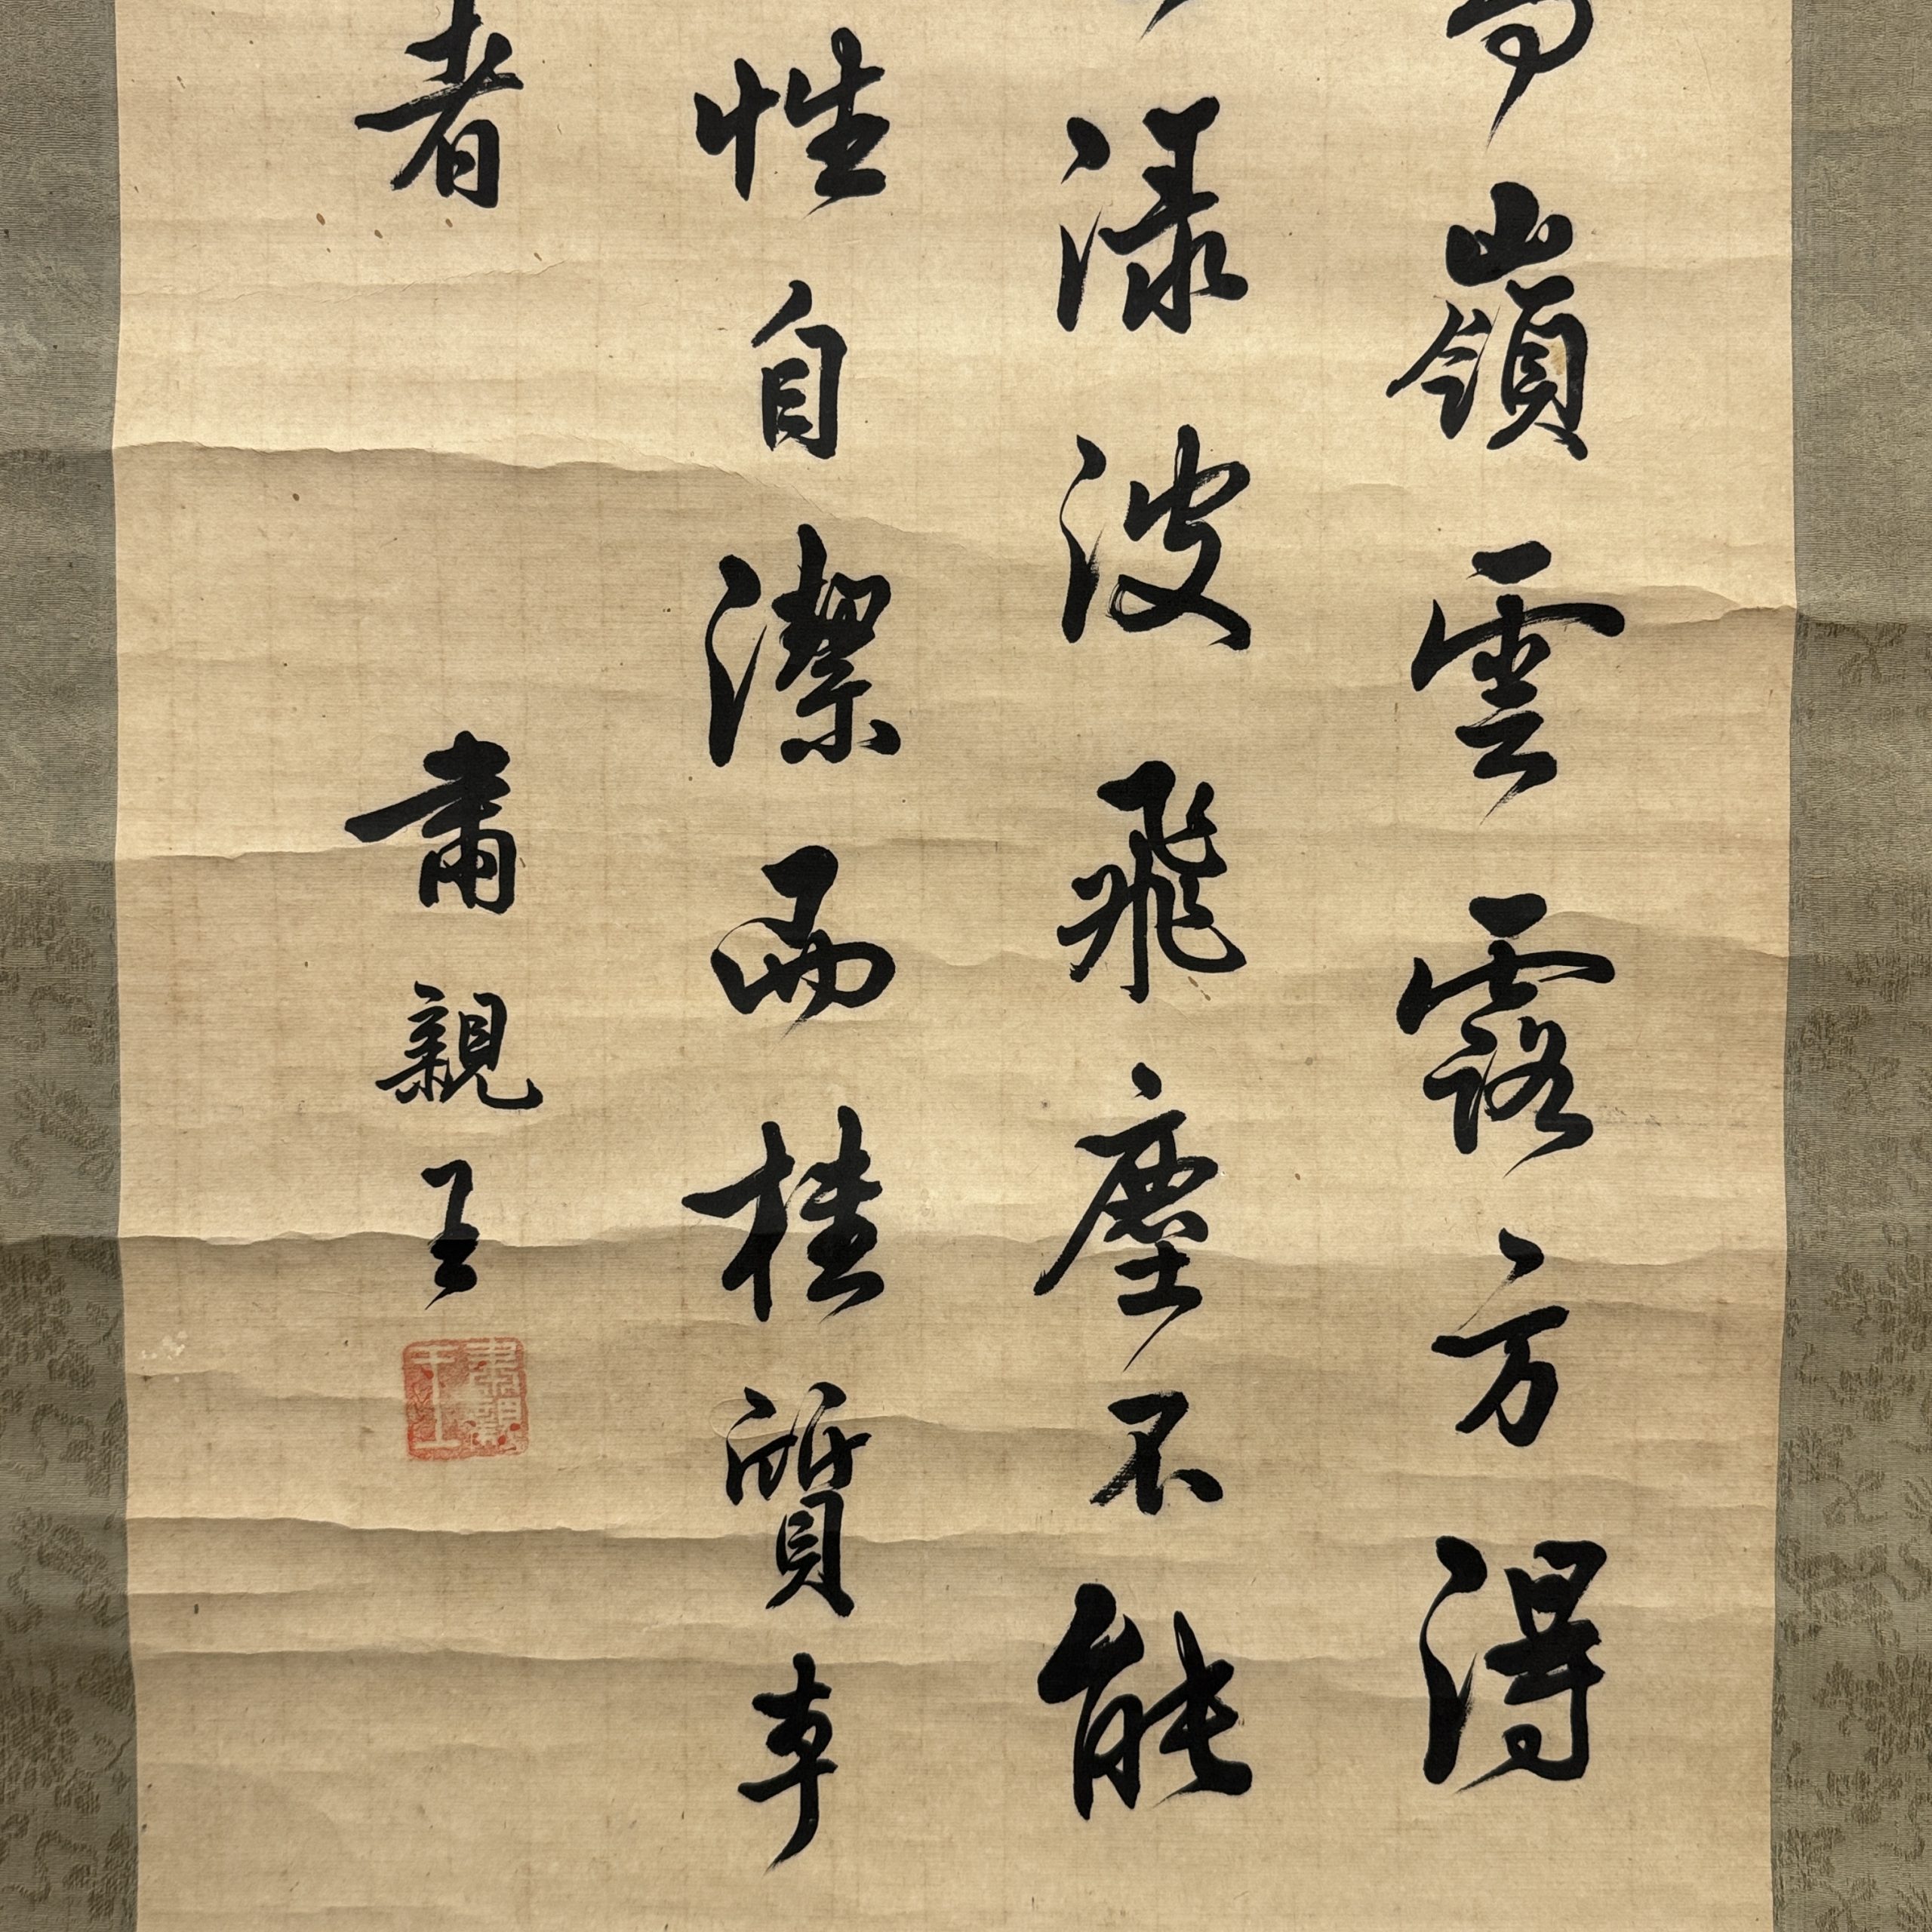 嶺雲露方得
淥波飛塵不能
性自潔而桂質本
者 肅親王
肅親王